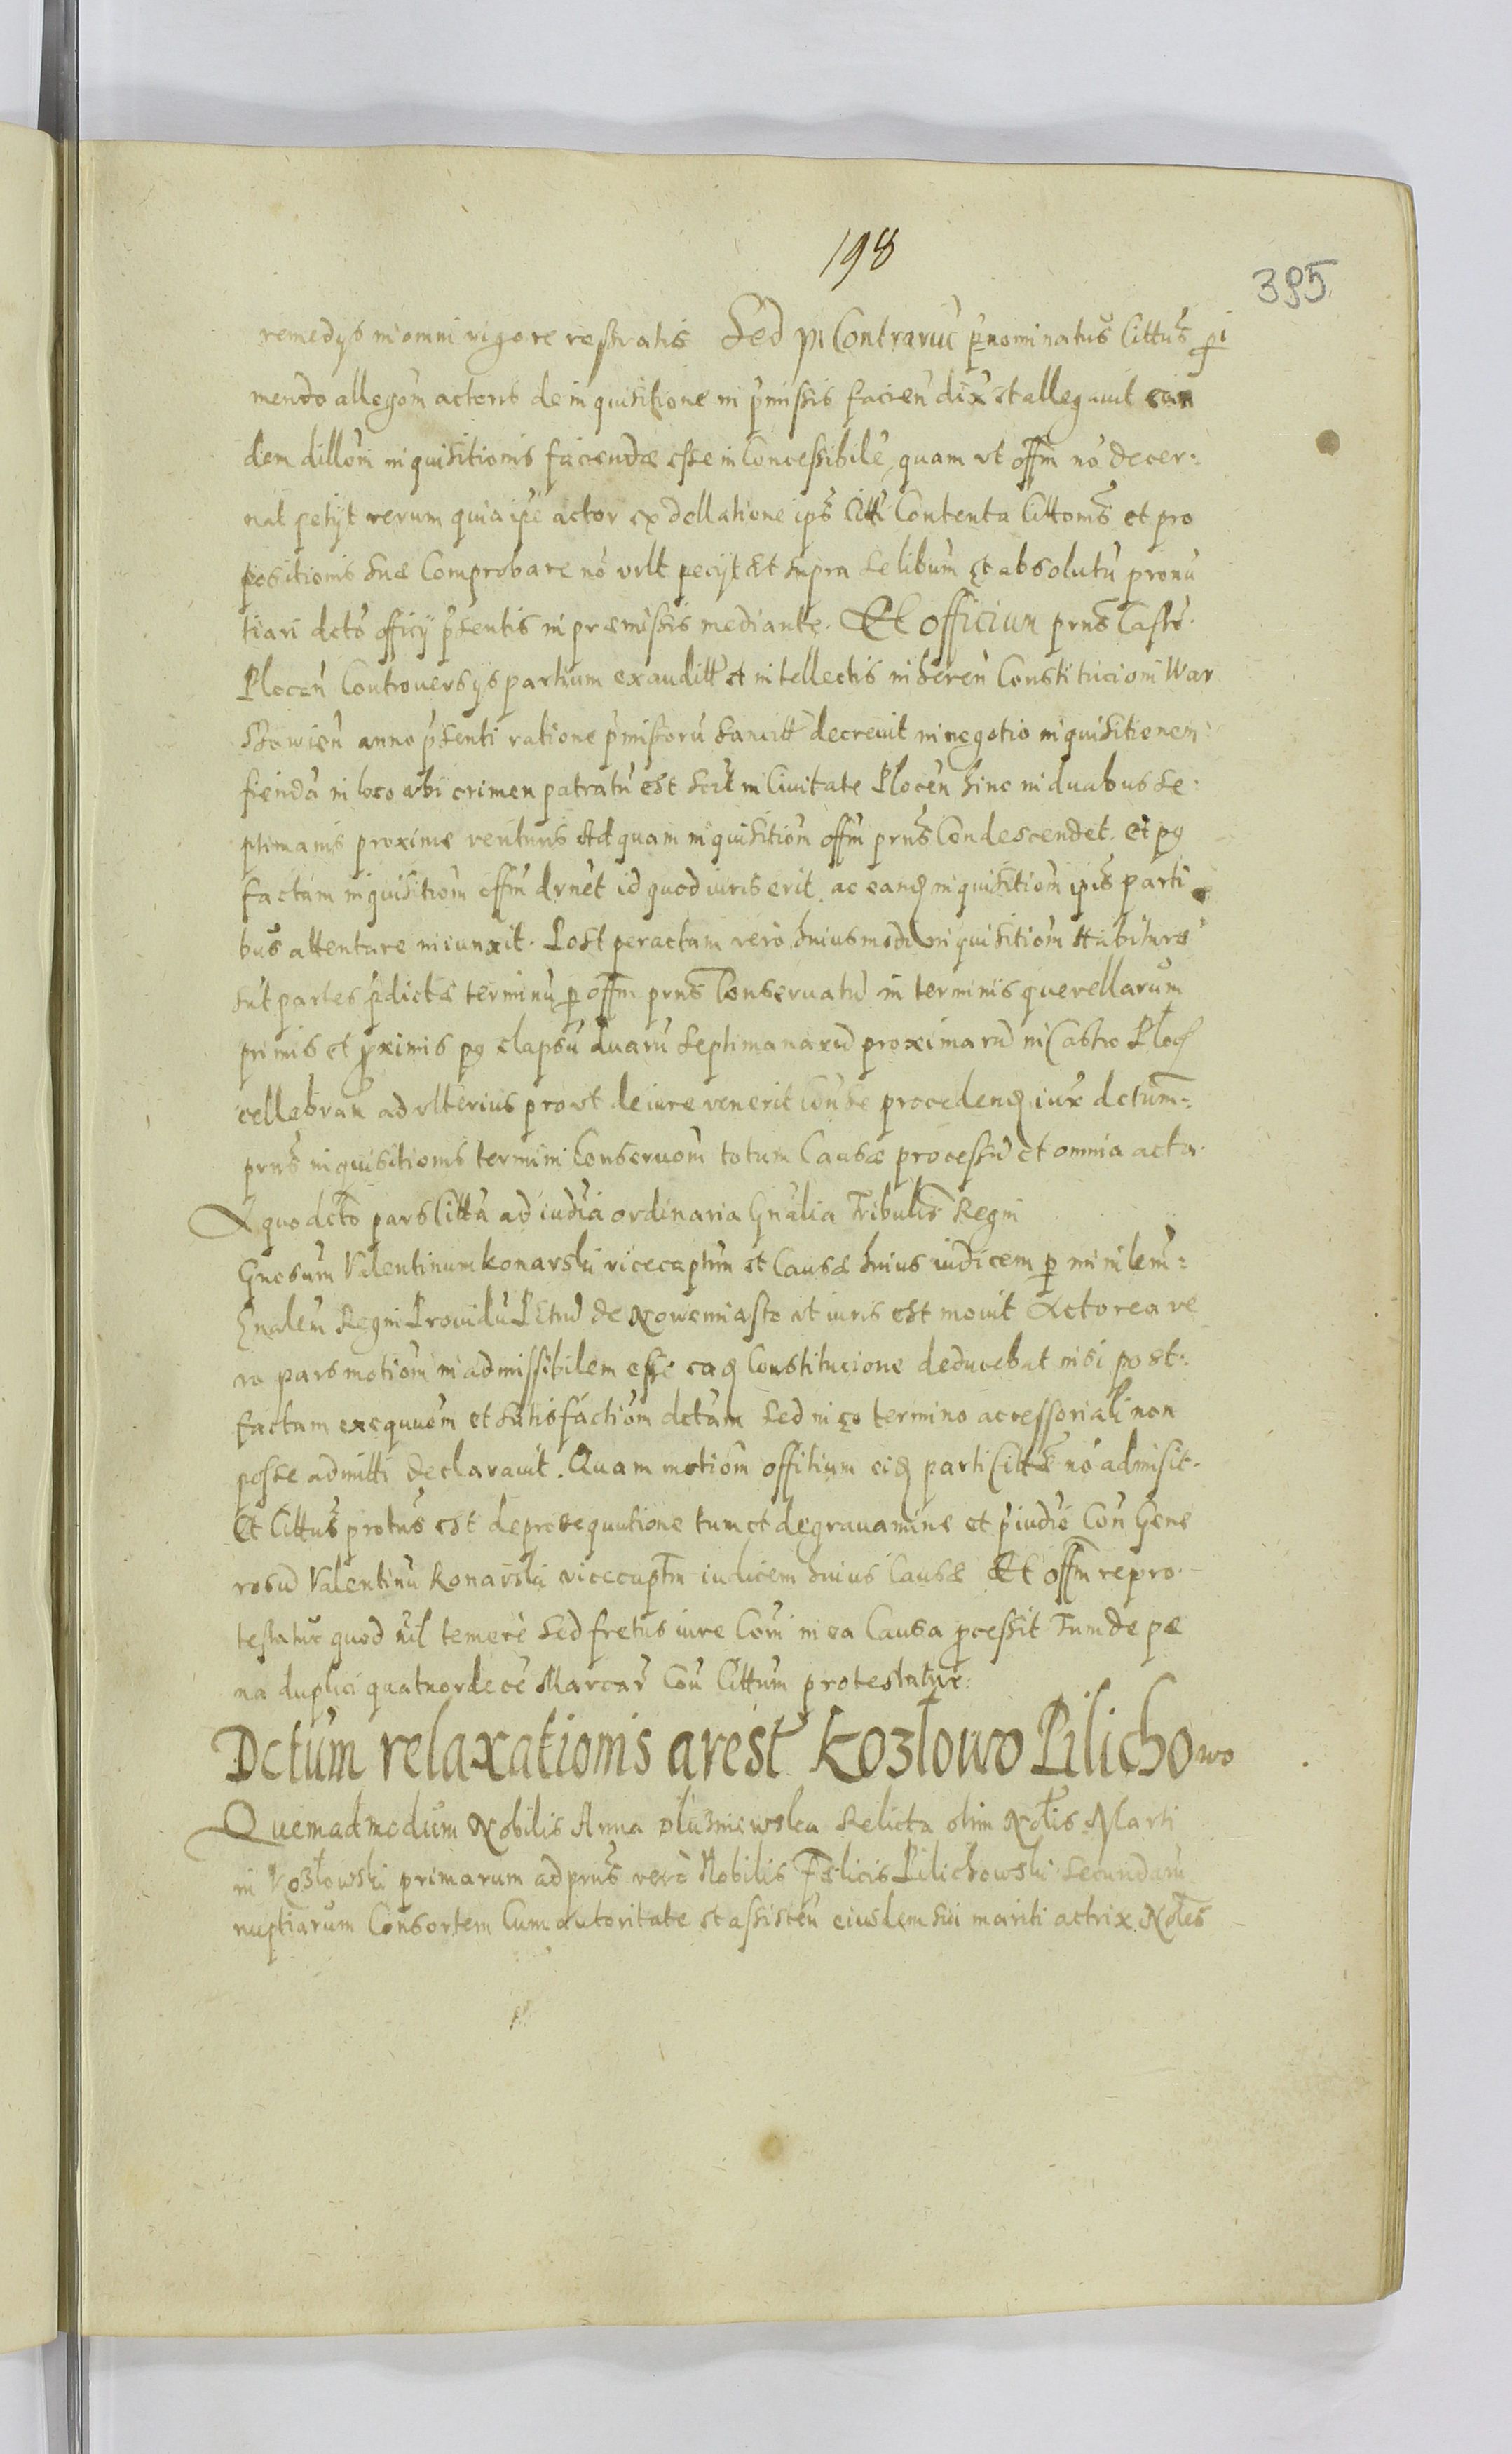 198
395
remedys in omni rigore restratis Sed in Contrarūc p̄nominatus Cittūs pi
mendo allegōm actoris de inquisitione in p̄missis facien̄ dix̄ et allegavit ean
dem dillōm inquisitionis faciendæ esse in Concessibilē, quam ut offm̄ nō decer:
nat petijt verum quia ip̄e actor ex dellatione ips̄ Citti Contenta Cittoms̄ et pro
positionis suæ Comprobare nō vult pecijt Et supra se libūm et absolutū pronū
tiari dctō officij p̄sentis in præmissis mediante. Et officium prns̄ Castrē.
Plocen̄ Controversijs partium exauditt̄ et intellectis in heren̄ Constitucioni War
Showien̄ anno p̄senti ratione p̄missorū sancitt̄ decrevit in negotio inquisitionem
fiendā in loco ubi crimen patratū est scilt̄ in Civitate Plocen̄ hinc in duabus se:
ptimanis proxime venturis Ad quam inquisitiōm offm̄ prns̄ Condescendet. et pꝯ
factam inquisitiōm offm̄ drnēt id quod iuris erit. ac eanḡ inquisitiōm ipis̄ parti
bus attentare iniunxit. Post peractam verō huiusmodi inquisitiōm Habituræ
sūt partes p̄dictæ terminū p̱ offm̄ prns̄ Conservatū in terminis querellarūm
primis et p̱ximis pꝯ elapsū duarū septimanarū proximarū in Castro Ploc̄
cellebran̄ ad ulterius prout de iure venerit Con̄ se proceden̄ iux̄ dctūm:
prns̄ inquisitionis termini Conservōm totum Causæ processū et omnia acta.
A quo dctō pars Cittā ad iudiā ordinaria Gnālia Tribulis̄ Regni
Gnosūm Valentinum Konarski vicecaptm̄ et Causæ huius iudicem p̱ minilem̄:
Gnalem̄ Regni Providū Petrū de Nowemiasto ut iuris est movit Actorea ve
ro pars motiōm in admissibilem esse eaḡ Constitucione deducebat nisi post:
factam exequuōm et satisfactiōm dctām sed in eo termino accessoriali non
posse admitti declaravit. Quam motiōm offitium eiḡ parti Cittæ nō admisit.
Et Cittūs protūs est de prosequutione tum et de gravamine et p̄iudiē Con̄ Gene
rosū Valentinū Konarski vicecaptm̄ iudicem huius Causæ Et offm̄ repro
testatur quod nil temerè sed fretus iure Com̄ in ea Causa p̱cessit Tum de pæ
na duplici quatuordecē Marcar̄ Con̄ Cittum protestatur:
Dctūm relaxationis arest̄ Kozłowo Pilichowo
Quemadmodum Nobilis Anna Służniewska Relicta olim Noblis Marti
ni Kozłowski primarum ad prns̄ verò Nobilis Fælicis Pilichowski Secundarū
nuptiarum Consortem Cum autoritate et assisten̄ eiusdem sui mariti actrix Nobles